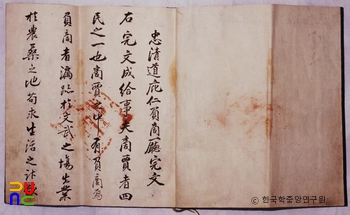 忠清道庇仁負商廳完文
右完文成給事夫商賈者四
民之一也商賈之中有負商焉
負商者濶跡於文武之場失業
於農桑之地苟求生活之計
ⓒ 한국학중앙연구원